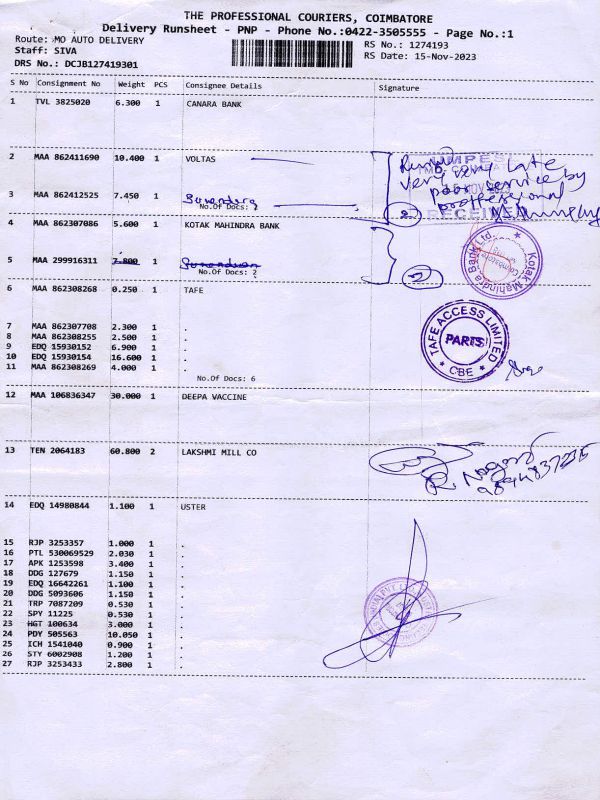 THE PROFESSIONAL COURIERS, COIMBATORE
Delivery Runsheet - PNP - Phone No.:0422-3505555 - Page No.:1
Route: MO AUTO DELIVERY
RS No.: 1274193
Staff: SIVA
RS Date: 15-Nov-2023
DRS No.: DCJB127419301
S No Consignment No Weight PCS Consignee Details Signature
1 TVL 3825020 6.300 1 CANARA BANK
2 MAA 862411690 10.400 1 VOLTAS
very late
poor service by
professional
3 MAA 862412525 7.450 1 Surendera
No.Of Docs:
RECEIVED
4 MAA 862307086 5.600 1 KOTAK MAHINDRA BANK
Kotak Mahindra Bank Ltd.
Coimbatore
5 MAA 299916311 7.800 1
No.Of Docs: 2
6 MAA 862308268 0.250 1 TAFE
7 MAA 862307708 2.300 1 .
8 MAA 862308255 2.500 1 .
9 EDQ 15930152 6.900 1 .
10 EDQ 15930154 16.600 1 .
11 MAA 862308269 4.000 1 .
No.Of Docs: 6
TAFE ACCESS LIMITED
PARTS
CBE
12 MAA 106836347 30.000 1 DEEPA VACCINE
13 TEN 2064183 60.800 2 LAKSHMI MILL CO
14 EDQ 14980844 1.100 1 USTER
15 RJP 3253357 1.000 1 .
16 PTL 530069529 2.030 1 .
17 APK 1253598 3.400 1 .
18 DDG 127679 1.150 1 .
19 EDQ 16642261 1.100 1 .
20 DDG 5093606 1.150 1 .
21 TRP 7087209 0.530 1 .
22 SPY 11225 0.530 1 .
23 HGT 100634 3.000 1 .
24 PDY 505563 10.050 1 .
25 ICH 1541040 0.900 1 .
26 STY 6002908 1.200 1 .
27 RJP 3253433 2.800 1 .